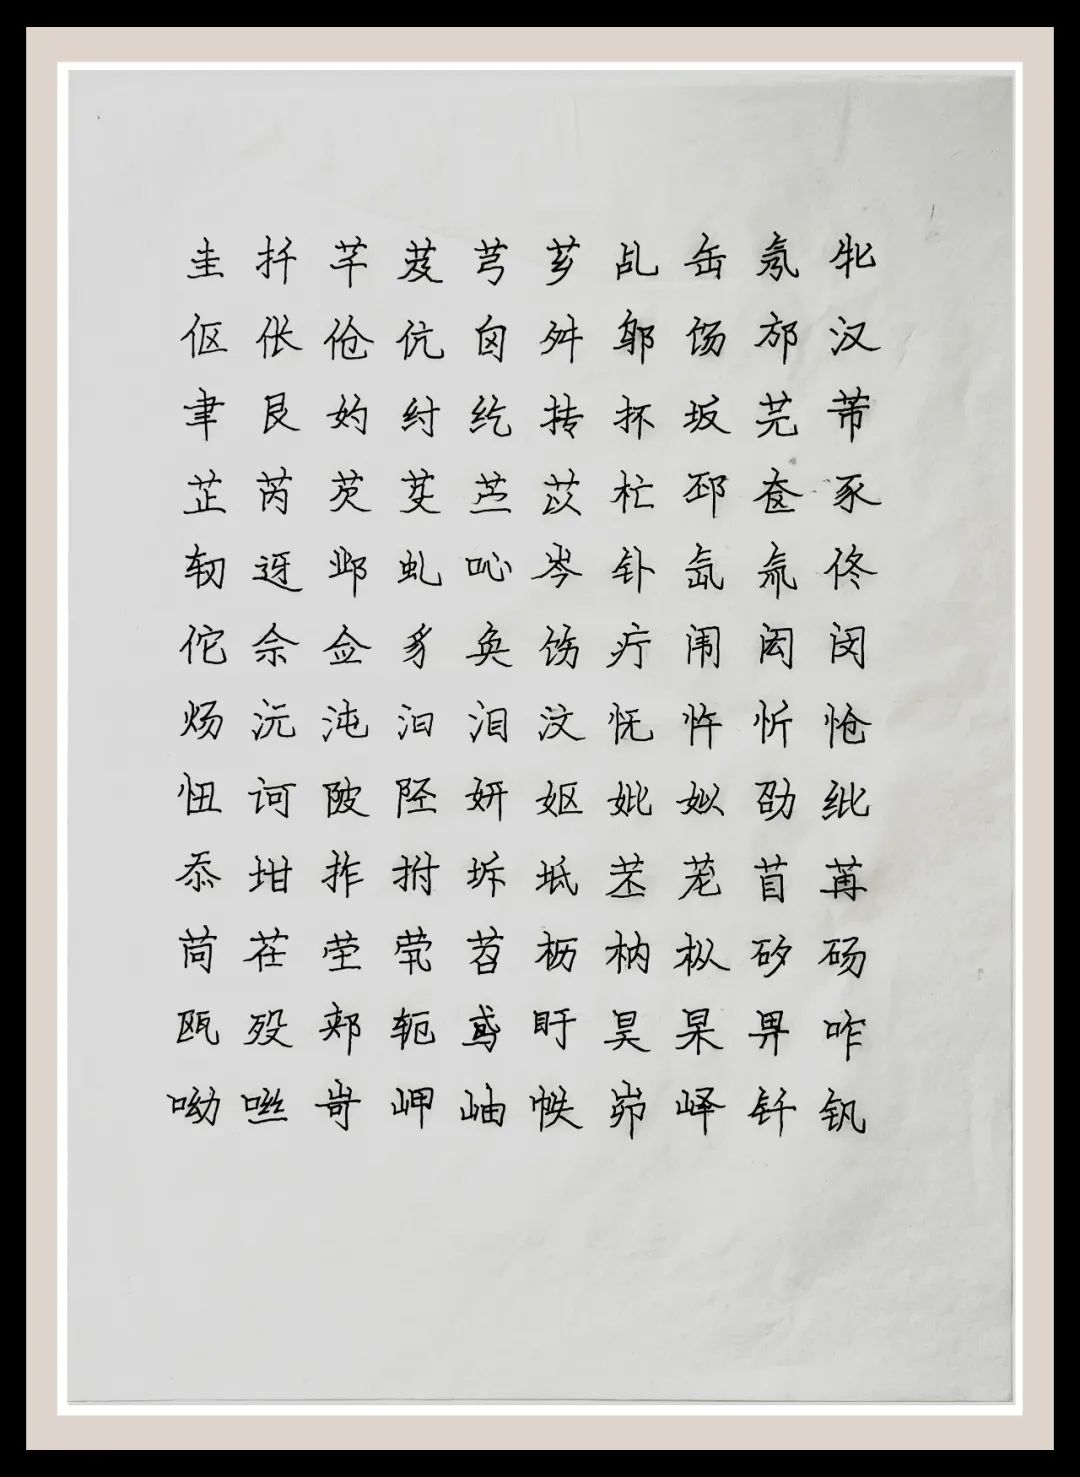 圭扦芊芨芎芗乩缶氖牝
伛伥伧伉囟舛邬饧邡汉
聿艮妁纣纥抟抔坂芫芾
芷芮芡芟苡杧邳奁豕
轫迓邺虬吣岑钋氙氚佟
佗佘佥豸奂饬疔闱闳闵
炀沅沌汩泪汶怃忤忻怆
忸诃陂陉妍妪妣姒劭纰
忝坩拃拊坼坻苤茏苜苒
苘茌茔茕苕枥枘枞矽砀
瓯殁郏轭鸢盱昊杲畀咋
呦咝岢岬岫帙峁峄钎钒